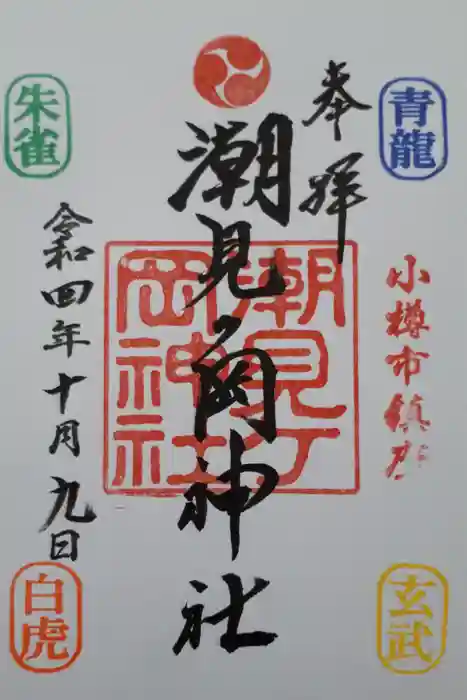 奉拝
青龍
小樽市鎮座
玄武
潮見ヶ岡神社
潮見ケ
岡神社
朱雀
令和四年十月九日
白虎